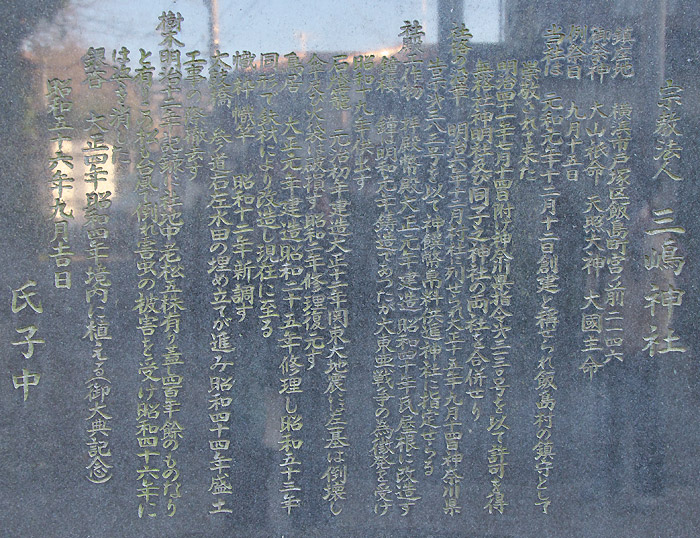 宗教法人 三嶋神社
鎮座地 横浜市戸塚区飯島町宮之前二二四六
御祭神 大山祇命 天照大神 大國主命
例祭日 九月十五日
当社は 元和元年十二月十一日創建と称せられ飯島村の鎮守として
崇敬されて来た
明治四十一年七月十四日附け神奈川県指令 号を以て許可を得
無格社神明社及び同子之神社の両社を合併せり
明治六年十二月村社に列せられ大正十五年九月十四日神奈川県
告示第二八二号を以て神饌幣帛料供進神社に指定せらる
工作物 拝殿幣殿大正元年建造昭和四十年瓦屋根に改造す
鐘楼 鐘は明和元年鋳造であったが大東亜戦争の為徴発を受け
昭和十九年供出す
石燈籠 元治初年建造大正十二年関東大地震に左一基は倒壊し
傘及び火袋は破損す昭和三年修理復元す
鳥居 大正元年建造昭和二十五年修理し昭和五十三年
同 て鉄材により改造し現在に至る
幟神幟竿 昭和十二年新調す
太鼓橋 参道石左水田の埋め立てが進み昭和四十四年盛土
工事の際撤去す
樹木 明治 老松五株有り三百四百年余のものなり
と有るこの松も台風で倒れ害虫の被害を受け昭和四十六年に
は全て消した
銀杏 大正四年昭和四年境内に植える(御大典記念)
昭和五十六年九月吉日
氏子中